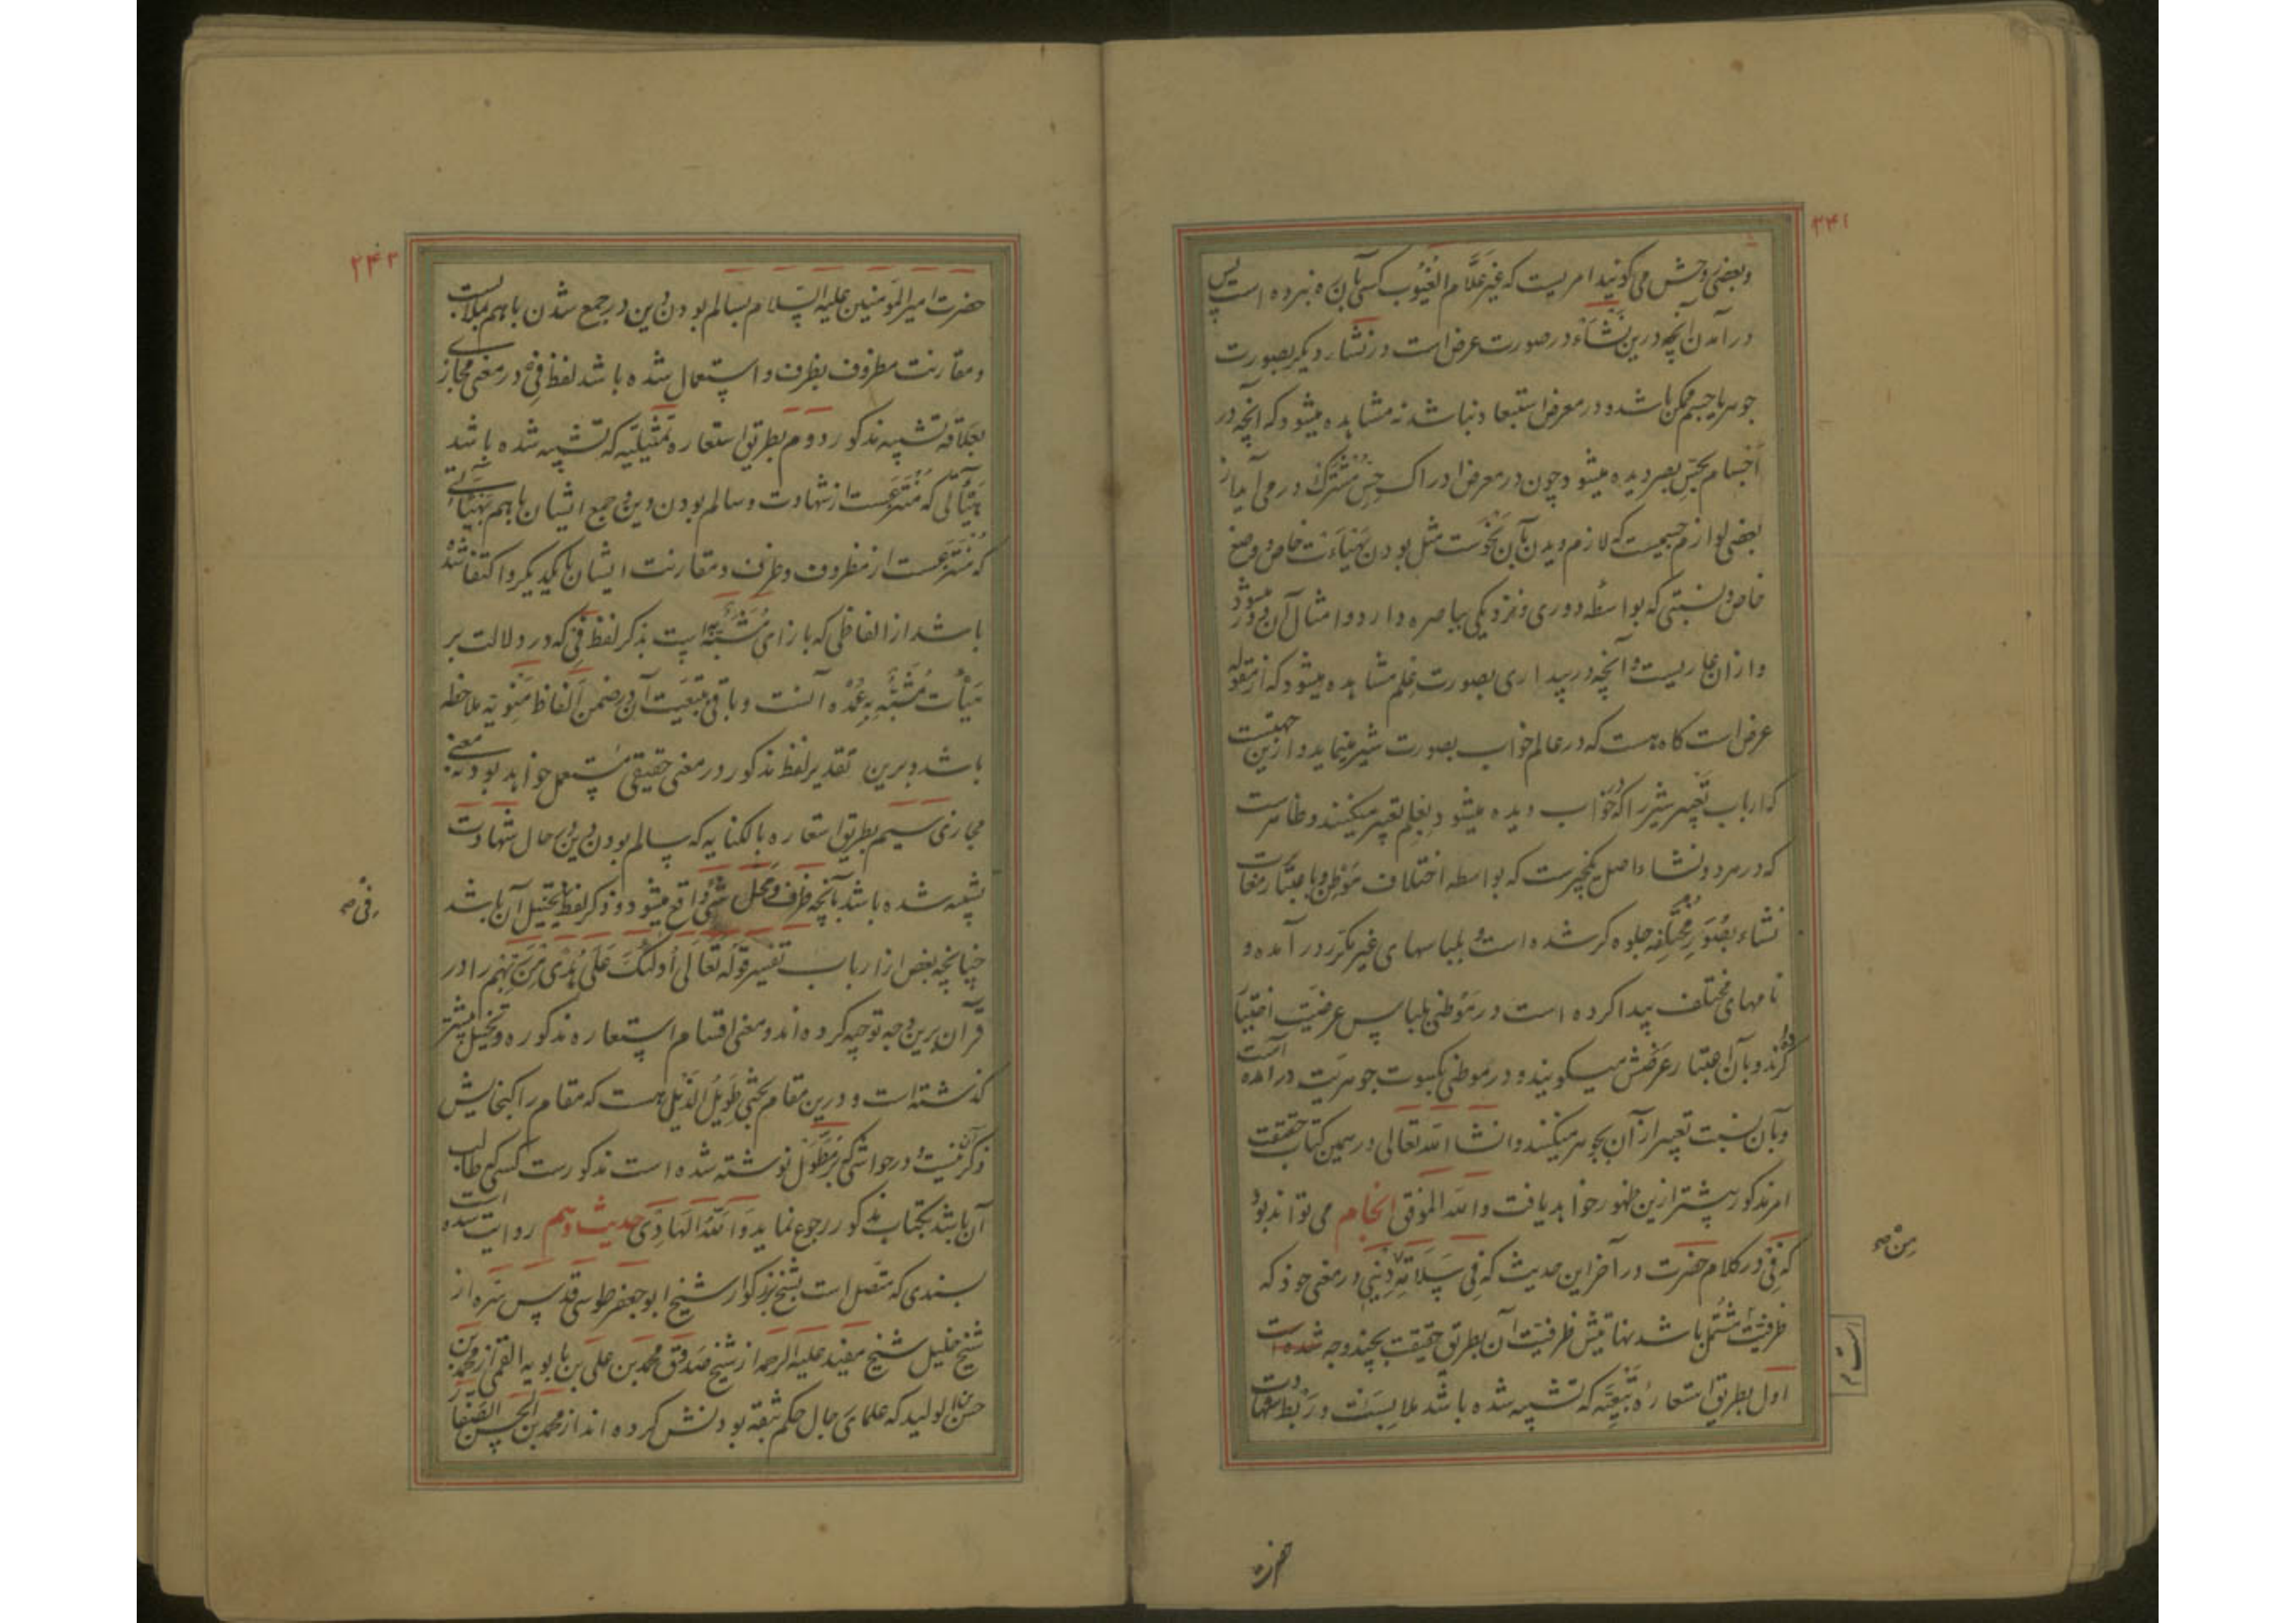 ۲۴۱
و بعضی روحش می گویند امریست که غیر علّام الغیوب کسی بآن ره نبرده است پس
در آمدن آنچه درین نشاء در صورت عرض است در نشاء دیگر بصورت
جوهر یا جسم ممکن باشد و در معرض استبعاد نباشد نه مشاهده میشود که آنچه در
اجسام بحس بصر دیده میشود چون در معرض ادراک حس مشترک در می آید از
بعضی لوازم جسمیت که لازم دیدن بآن نحوست مثل بودن بهیاءت خاص و وضع
خاص و نسبتی که بواسطه دوری و نزدیکی بباصره دارد و امثال آن دور میشود
و ازان عاریست و آنچه در بیداری بصورت علم مشاهده میشود که از مقوله
عرض است گاه هست که در عالم خواب بصورت شیر مینماید و ازین جهتست
که ارباب تعبیر شیر را که در خواب دیده میشود بعلم تعبیر میکنند و ظاهرست
که در هر دو نشاء اصل یکچیزست که بواسطه اختلاف موطن و باعتبار مغایرت
نشاء بصور مختلفه جلوه گر شده است و بلباسهای غیر مکرر در آمده و
نامهای مختلف پیدا کرده است در موطنی بلباس عرضیت اختیار
کرده اند و بآن اعتبار عرضش میگویند و در موطنی بکسوت جوهریت در آمده است
و بآن نسبت تعبیر از آن بجوهر میکنند و انشاء الله تعالی در همین کتاب حقیقت
امر مذکور بیشتر ازین ظهور خواهد یافت والله الموفق انجام می تواند بود
که فی در کلام حضرت در آخر این حدیث که فی سلامة دینی در معنی خود که
من صح
ظرفیت مشتمل باشد نهایتش ظرفیت آن بطریق حقیقت بچند وجه شده است
است م
اول بطریق استعاره تبعیه که تشبیه شده باشد ملابست و ربط شهادت
حضرت
۲۴۲
حضرت امیر المؤمنین علیه السلام بسالم بودن دین در جمع شدن باهم بملابست
و مقارنت مظروف بظرف و استعمال شده باشد لفظ فی در معنی مجازی
بعلاقه تشبیه مذکور دوم بطریق استعاره تمثیلیه که تشبیه شده باشد
هیأتی که منتزعست از شهادت و سالم بودن دین و جمع ایشان باهم بهیأتی
که منتزعست از مظروف و ظرف و مقارنت ایشان بایکدیگر و اکتفا شده
باشد از الفاظی که بازای مشبه به است بذکر لفظ فی که در دلالت بر
هیأت مشبه به عمده آنست و باقی بتبعیت آن در ضمن الفاظ منویه ملاحظه
باشد و برین تقدیر لفظ مذکور در معنی حقیقی مستعمل خواهد بود نه معنی
مجازی سیم بطریق استعاره بالکنایه که سالم بودن دین در حال شهادت
تشبیه شده باشد بآنچه ظرف و محل شیٔ واقع میشود و ذکر لفظ تخییل آن باشد
فی صح
چنانچه بعض از ارباب تفسیر قوله تعالی أولئک علی هدی من ربهم را در
قرآن برین وجه توجیه کرده اند و معنی اقسام استعاره مذکوره و تخییل بیشتر
گذشته است و درین مقام بحثی طویل الذیل هست که مقام را گنجایش
ذکر آن نیست و در حواشی که بر مطول نوشته شده است مذکورست کسی که طالب
آن باشد بکتاب مذکور رجوع نماید والله الهادی حدیث دهم روایت شده است
بسندی که متصل است بشیخ بزرگوار شیخ ابو جعفر طوسی قدس سره از
شیخ جلیل شیخ مفید علیه الرحمه از شیخ صدوق محمد بن علی بن بابویه القمی از محمد بن
حسن بن الولید که علمای رجال حکم بثقه بودنش کرده اند از محمد بن الحسن الصفار